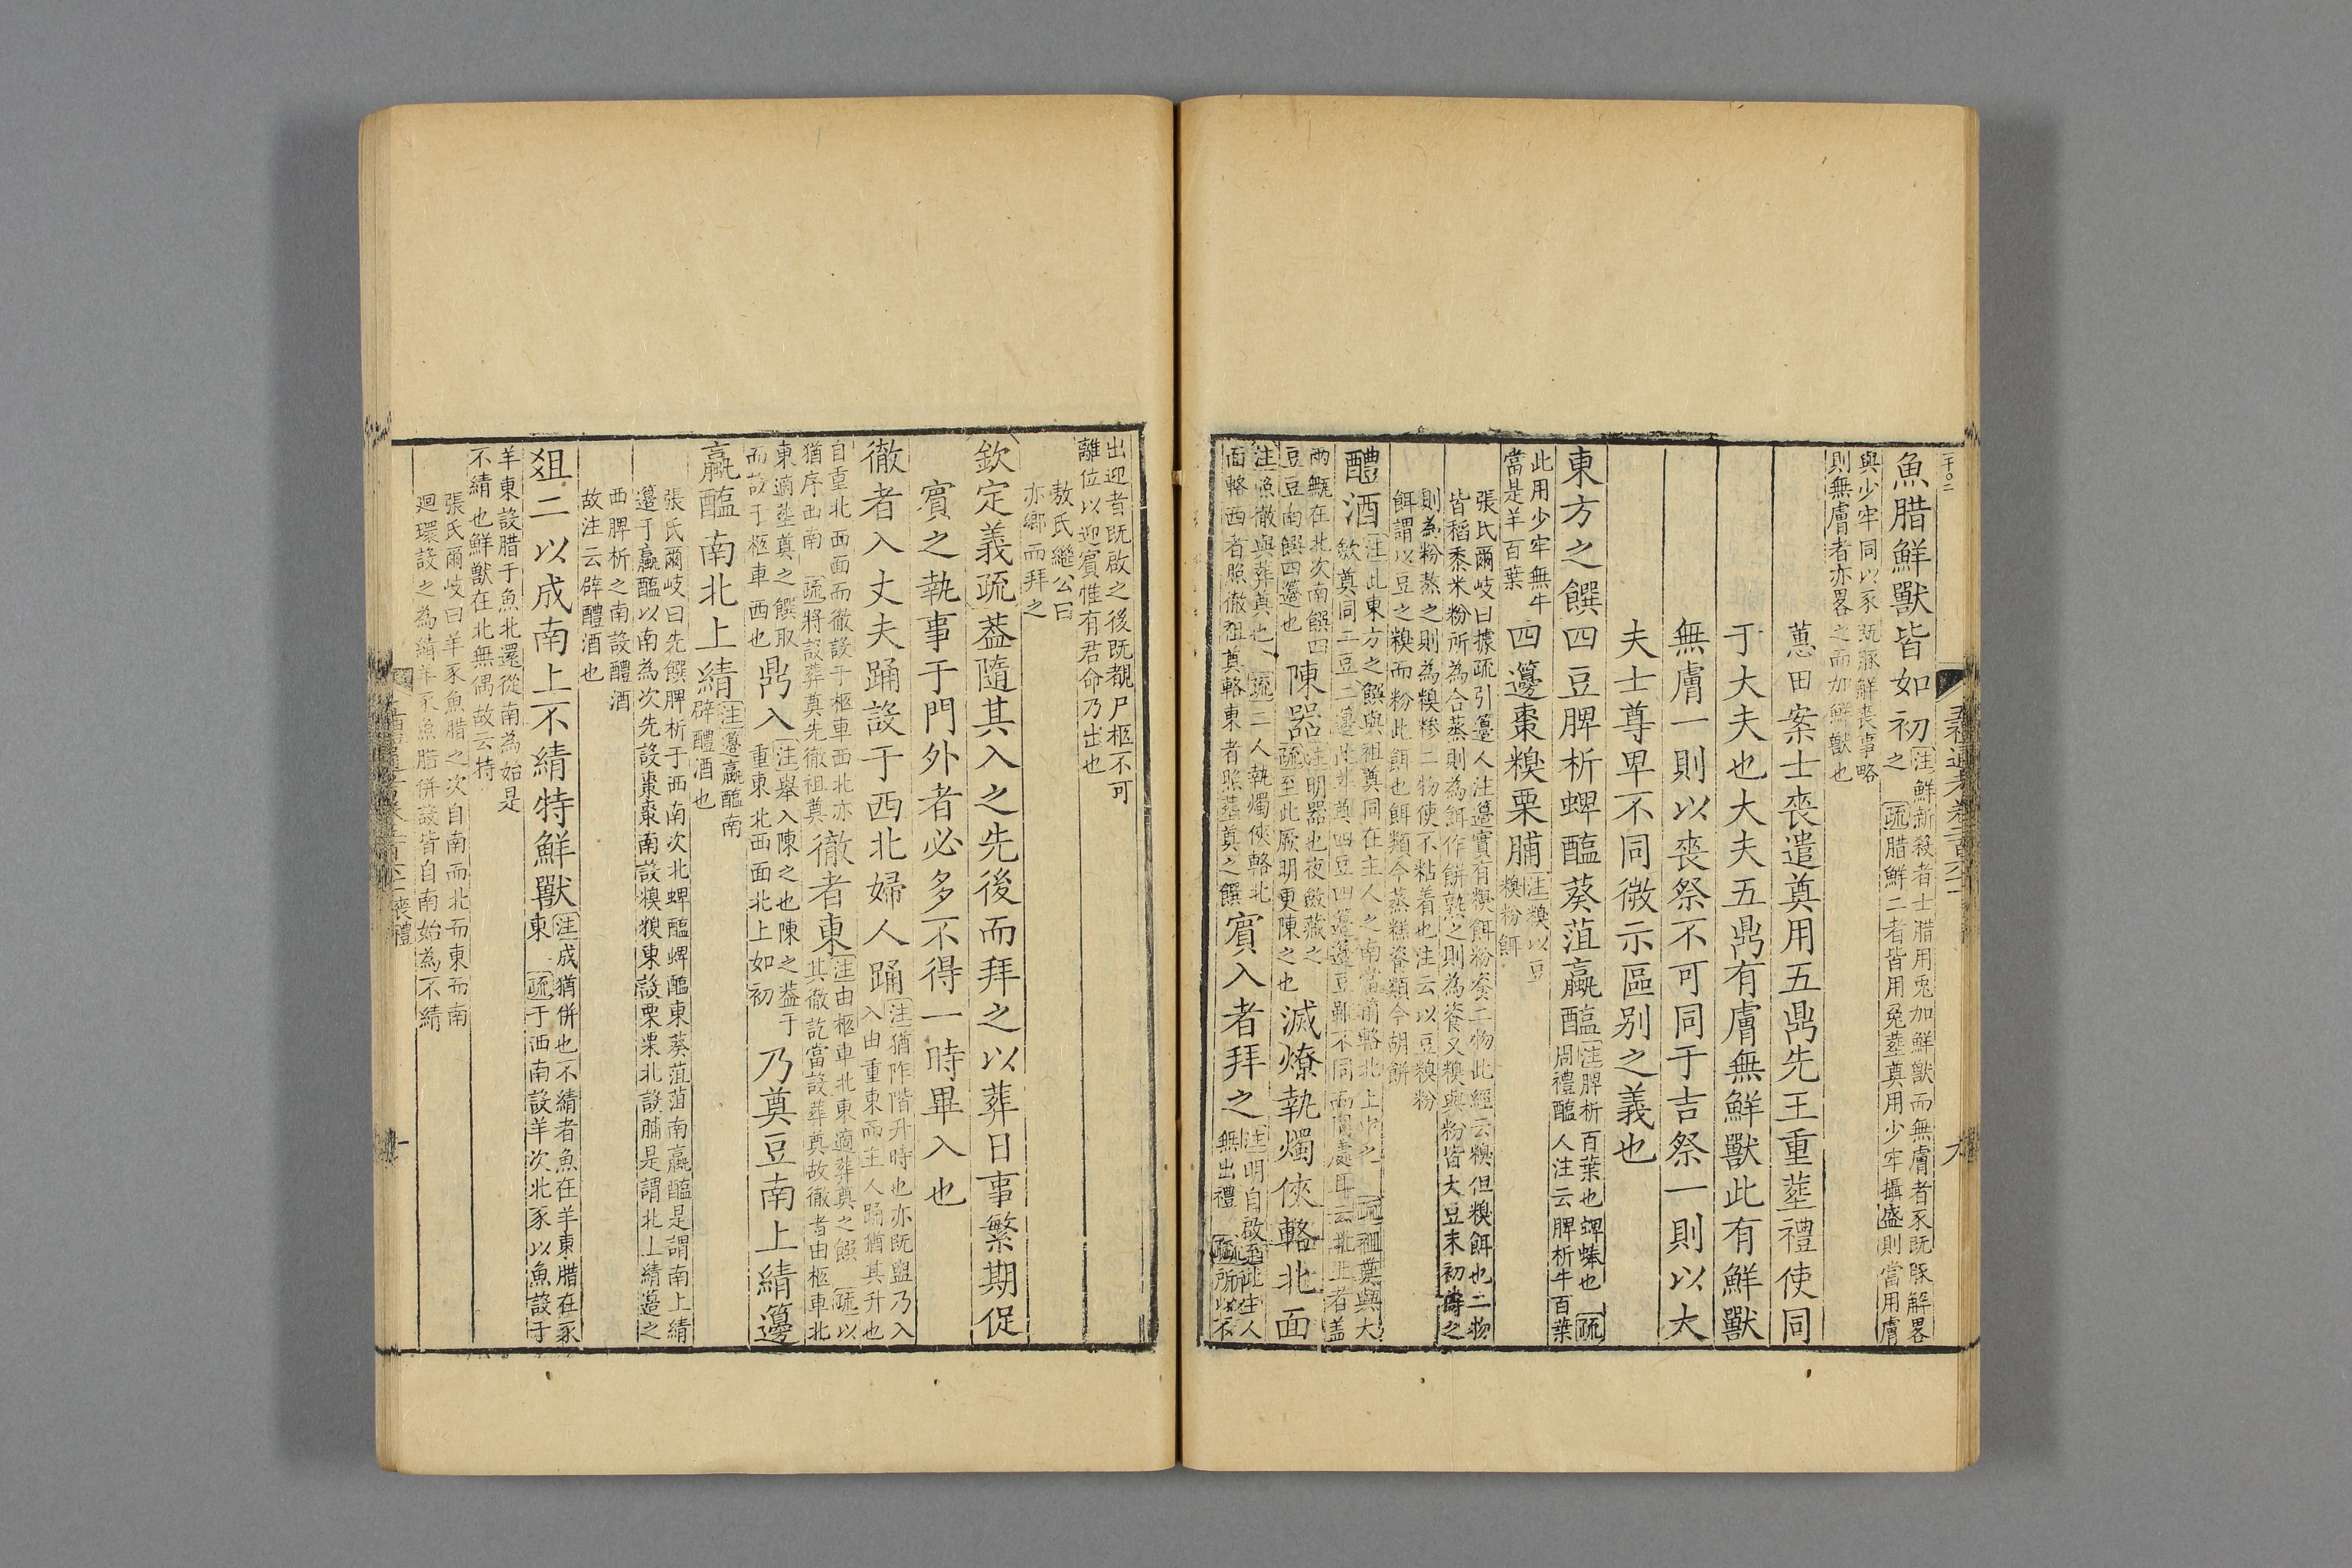 魚腊鮮獸皆如初
注鮮新殺者士腊用兔加鮮獸而無膚者豕既豚解畧
之 疏腊鮮二者皆用兔葬奠用少牢攝盛則當用膚
與少牢同以豕既豚解喪事略
則無膚者亦畧之而加鮮獸也
蕙田案士喪遣奠用五鼎先王重塟禮使同
于大夫也大夫五鼎有膚無鮮獸此有鮮獸
無膚一則以喪祭不可同于吉祭一則以大
夫士尊卑不同微示區别之義也
東方之饌四豆脾析蜱醢葵菹蠃醢
注脾析百葉也蜱蜯也 疏
周禮醢人注云脾析牛百葉
此用少牢無牛
當是羊百葉
四籩棗糗栗脯
注糗以豆
糗粉餌
張氏爾岐曰據疏引籩人注籩實有糗餌粉餈二物此經云糗但糗餌也二物
皆稻黍米粉所為合蒸則為餌作餅熟之則為餈又糗與粉皆大豆末初擣之
則為粉熬之則為糗糝二物使不粘着也注云以豆糗粉
餌謂以豆之糗而粉此餌也餌類今蒸糕餈類今胡餅
醴酒
注此東方之饌與祖奠同在主人之南當前輅北上巾之 疏祖奠與大
斂奠同二豆二籩此葬奠四豆四籩籩豆雖不同而同處耳云北上者盖
兩甒在北次南饌四
豆豆南饌四籩也
陳器
注明器也夜斂藏之
疏至此厥明更陳之也
滅燎執燭俠輅北面
注照徹與葬奠也 疏二人執燭俠輅北
面輅西者照徹祖奠輅東者照葬奠之饌
賓入者拜之
注明自啟至此主人
無出禮 疏所以不
出迎者既啟之後既覩尸柩不可
離位以迎賓惟有君命乃出也
敖氏繼公曰
亦鄉而拜之
欽定義疏葢隨其入之先後而拜之以葬日事繁期促
賓之執事于門外者必多不得一時畢入也
徹者入丈夫踊設于西北婦人踊
注猶阼階升時也亦既盥乃入
入由重東而主人踊猶其升也
自重北西面而徹設于柩車西北亦
猶序西南 疏將設葬奠先徹祖奠
徹者東
注由柩車北東適葬奠之饌 疏以
其徹訖當設葬奠故徹者由柩車北
東適塟奠之饌取
而設于柩車西也
鼎入
注舉入陳之也陳之葢于
重東北西面北上如初
乃奠豆南上綪籩
蠃醢南北上綪
注籩蠃醢南
辟醴酒也
張氏爾岐曰先饌脾析于西南次北蜱醢蜱醢東葵菹菹南蠃醢是謂南上綪
籩于蠃醢以南為次先設棗棗南設糗糗東設栗栗北設脯是謂北上綪籩之
西脾析之南設醴酒
故注云辟醴酒也
俎二以成南上不綪特鮮獸
注成猶併也不綪者魚在羊東腊在豕
東 疏于西南設羊次北豕以魚設于
羊東設腊于魚北還從南為始是
不綪也鮮獸在北無偶故云特
張氏爾岐曰羊豕魚腊之次自南而北而東而南
廻環設之為綪羊豕魚腊併設皆自南始為不綪